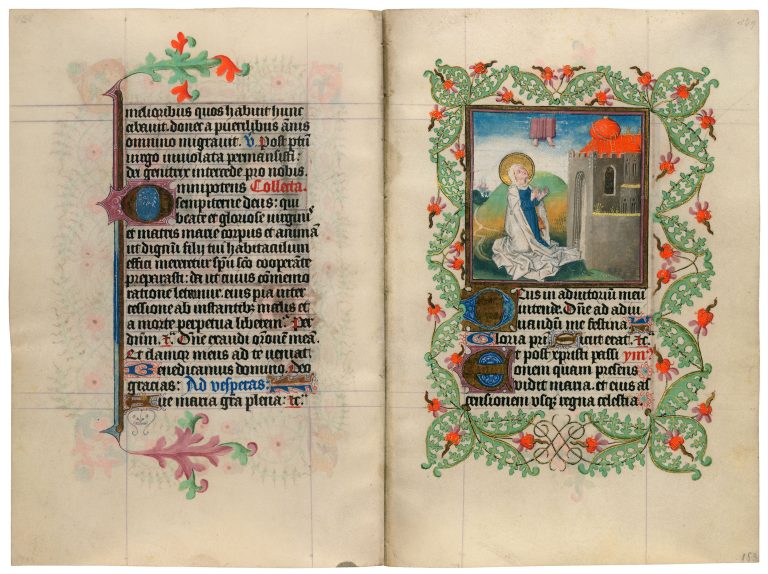 melioribus quos habuit hunc
donec a puerilibus annis
omnino migravit. V. Post ptū
virgo inviolata permansisti:
dei genitrix intercede pro nobis.
Omnipotens Collecta.
sempiterne deus: qui
beate et gloriose virginis
et matris marie corpus et animā
ut dignū filii tui habitaculum
effici mereretur spū scō cooperāte
preparasti: da ut cuius cōmemo
ratione letamur. eius pia inter
cessione ab instantibus malis et
a morte perpetua liberemur. Per
Dñe exaudi orōnem meā.
Et clamor meus ad te veniat.
Benedicamus domino. Deo
gracias: Ad vesperas:
Ave maria grā plena: tc̄
Deus in adiutorium meū
intende. Dñe ad adiu
uandū me festina.
Gloria pri sicut erat. tc̄
Et post xpisti passi ym9
onem quam presens
vidit maria. et eius as
tensionem usq; regna celestia.
153